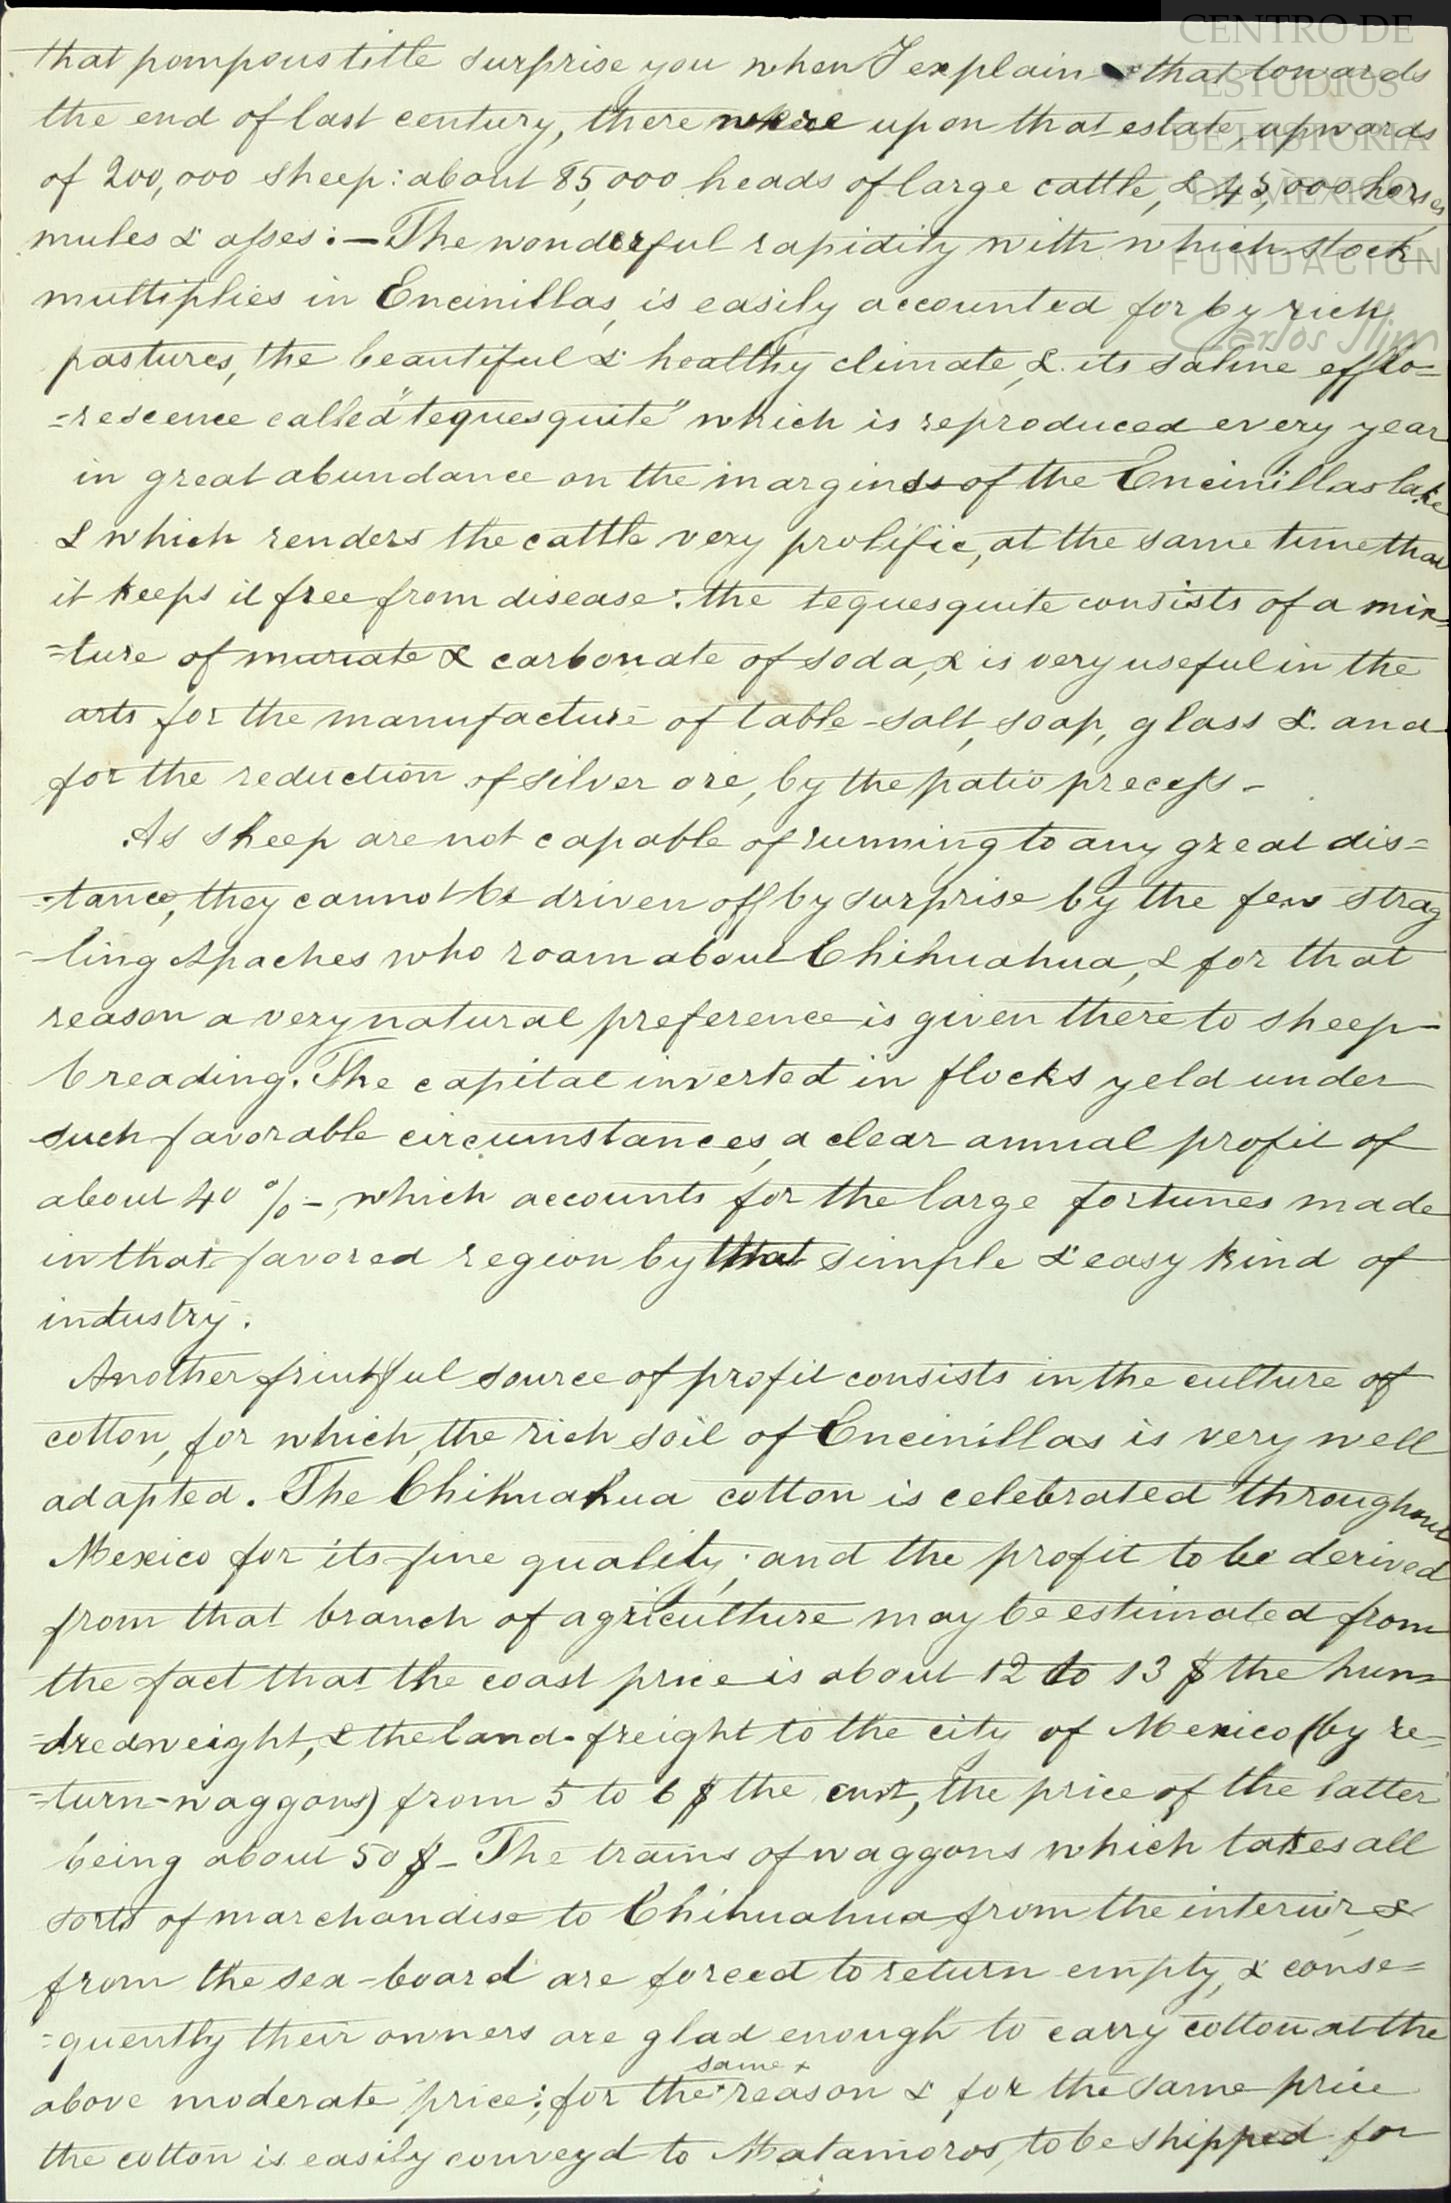 CENTRO DE
ESTUDIOS
DE HISTORIA
DE MEXICO
FUNDACION
Carlos Slim
that pompous title surprise you when I explain that towards
the end of last century, there were upon that estate, upwards
of 200,000 sheep: about 85,000 heads of large cattle, & 45,000 horses,
mules & asses: — The wonderful rapidity with which stock
multiplies in Encinillas, is easily accounted for by rich
pastures, the beautiful & healthy climate, & its saline efflo=
=rescence called "tequesquite" which is reproduced every year
in great abundance on the margins of the Encinillas lake
& which renders the cattle very prolific, at the same time that
it keeps it free from disease: the tequesquite consists of a mix=
=ture of muriate & carbonate of soda, & is very useful in the
arts for the manufacture of table-salt, soap, glass &. and
for the reduction of silver ore, by the patio precess -
As sheep are not capable of running to any great dis=
-tance, they cannot be driven off by surprise by the few strag
-ling Apaches who roam about Chihuahua, & for that
reason a very natural preference is given there to sheep-
breading. The capital inverted in flocks yeld under
such favorable circumstances, a clear annual profit of
about 40 % -, which accounts for the large fortunes made
in that favored region by that simple & easy kind of
industry.
Another friutful source of profit consists in the culture of
cotton, for which, the rich soil of Encinillas is very well
adapted. The Chihuahua cotton is celebrated throughout
Mexico for its fine quality; and the profit to be derived
from that branch of agriculture may be estimated from
the fact that the coast price is about 12 to 13 $ the hun=
=dredweight, & the land-freight to the city of Mexico (by re=
=turn-waggons) from 5 to 6 $ the cwt, the price of the latter
being about 50 $ - The trains of waggons which takes all
sorts of marchandise to Chihuahua from the interior, &
from the sea-board are forced to return empty, & conse=
=quently their owners are glad enough to carry cotton at the
above moderate price; for the same reason & for the same price
the cotton is easily conveyd to Matamoros, to be shipped for